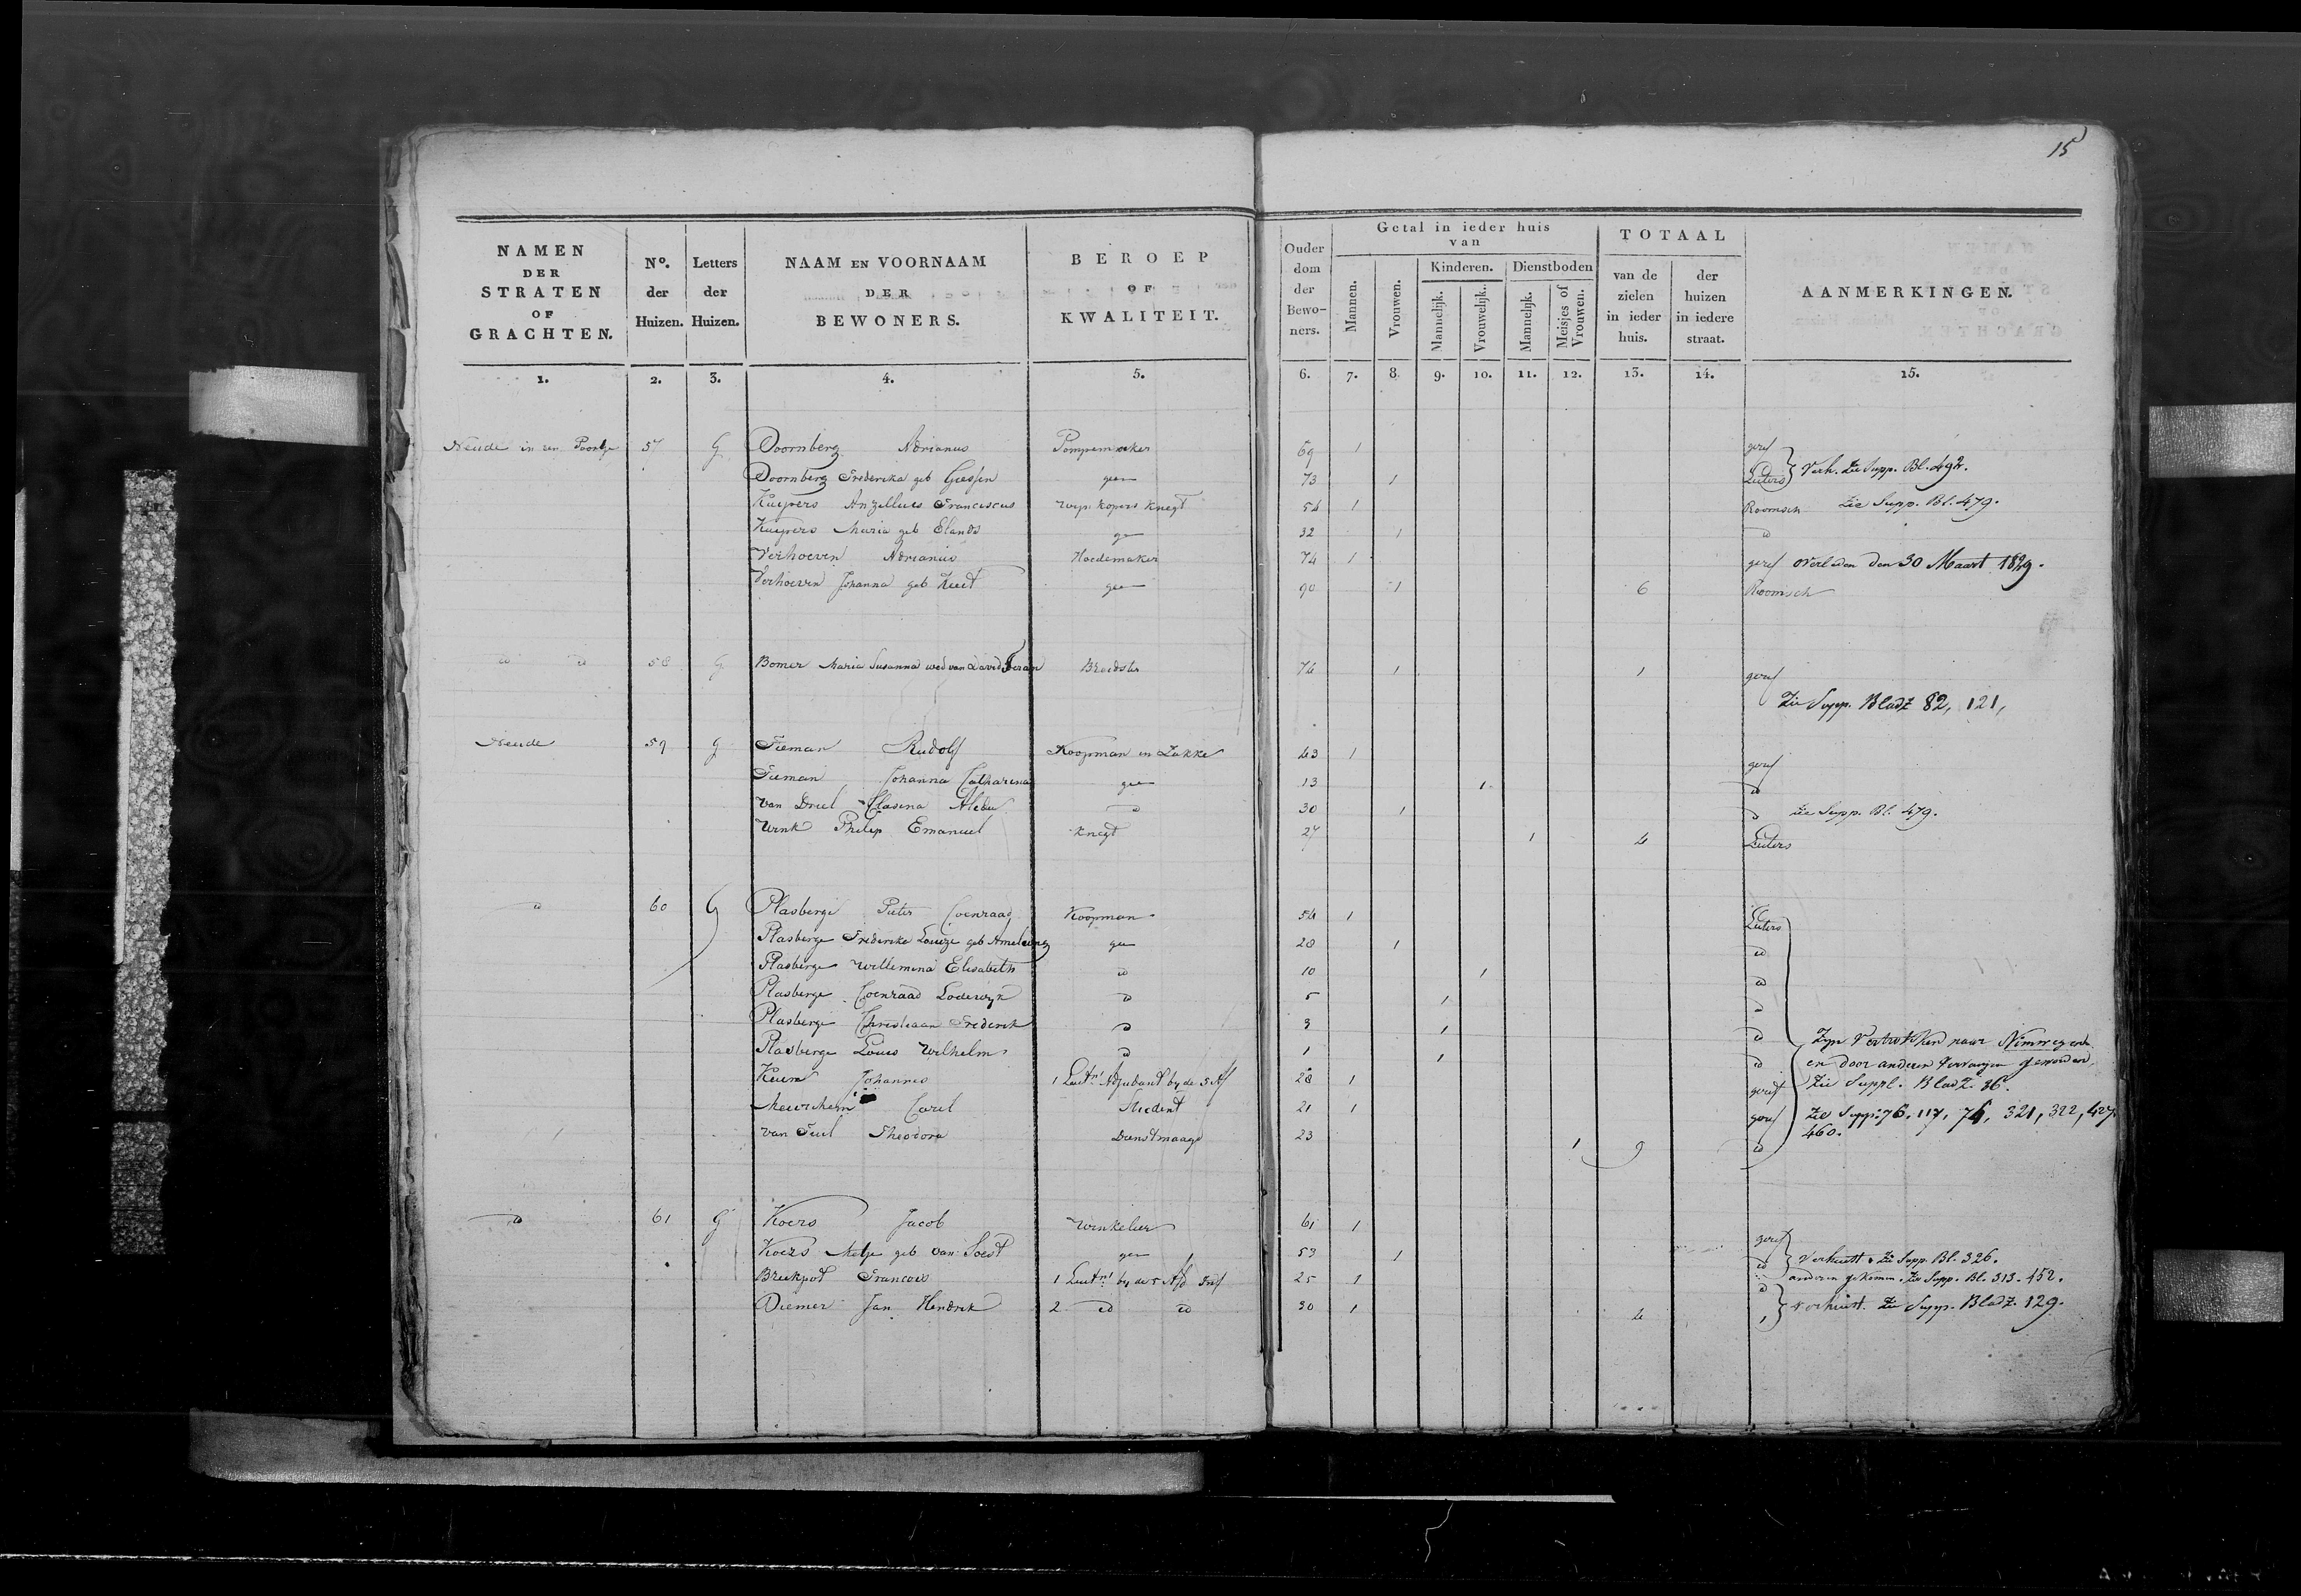 15
NAMEN DER STRATEN OF GRACHTEN.
No. der Huizen.
Letters der Huizen.
NAAM EN VOORNAAM DER BEWONERS.
BEROEP OF KWALITEIT.
Ouder dom der Bewo- ners.
Getal in ieder huis van
Mannen.
Vrouwen.
Kinderen.
Mannelijk.
Vrouwelijk.
Dienstboden
Mannelijk.
Meisjes of Vrouwen.
TOTAAL
van de zielen in ieder huis.
der huizen in iedere straat.
AANMERKINGEN.
1. 2. 3. 4. 5. 6. 7. 8. 9. 10. 11. 12. 13. 14. 15.
Neude in een Poortje 57 G Doornberg Adrianus Pompemaker 69 1 geref
Doornberg Frederika geb Giessen geen 73 1 Luters Verh. Zie Supp. Bl. 492.
Kuypers Anzellus Franciscus wyn kopers knegt 54 1 Roomsch Zie Supp. Bl. 479.
Kuypers Maria geb Elands ge 32 1 id
Verhoeven Adrianus Hoedemaker 74 1 geref overleden den 30 Maart 1829.
Verhoeven Johanna geb gee 90 1 6 Roomsch
id id 58 G Bomer Maria Susanna wed van David Breidster 74 1 1 geref
Zie Supp. Bladz 82, 121,
Neude 59 G Tieman Rudolf Koopman in Lakke 43 1 geref
Tieman Johanna Catharina gee 13 1 id
van Driel Clasina Aleda id 30 1 id Zie Supp. Bl. 479.
Wink Philip Emanuel knegt 27 1 4 Luters
id 60 G Plasberge Pieter Coenraad Koopman 54 1 Luters
Plasberge Frederike Louize geb Amelung gee 28 1 id
Plasberge Willemina Elisabeth id 10 1 id
Plasberge Coenraad Lodewyk id 5 1 id
Plasberge Christiaan Frederik id 3 1 id Zyn Vertrokken naar Nimwegen
Plasberge Louis Wilhelm id 1 1 id en door anderen vervangen geworden,
Keun Johannes 1 Luitnt Adjudant by de 5 Af 28 1 geref Zie Suppl. Bladz. 36.
Carel Student 21 1 geref Zie Supp: 76, 117, 74, 321, 322, 427.
460.
van Tuil Theodora Dienstmaagd 23 1 9 id
id 61 G Koers Jacob Winkelier 61 1 geref
Koers Metje geb van Soest gee 53 1 id Verhuist Zie Supp. Bl. 326.
Breekpot Francois 1 Luitnt by de 5 Afd Inf 25 1 id anderen gekomen. Zie Supp. Bl. 313. 452.
Diemer Jan Hendrik 2 id id 30 1 4 verhuist. Zie Supp. Bladz. 129.